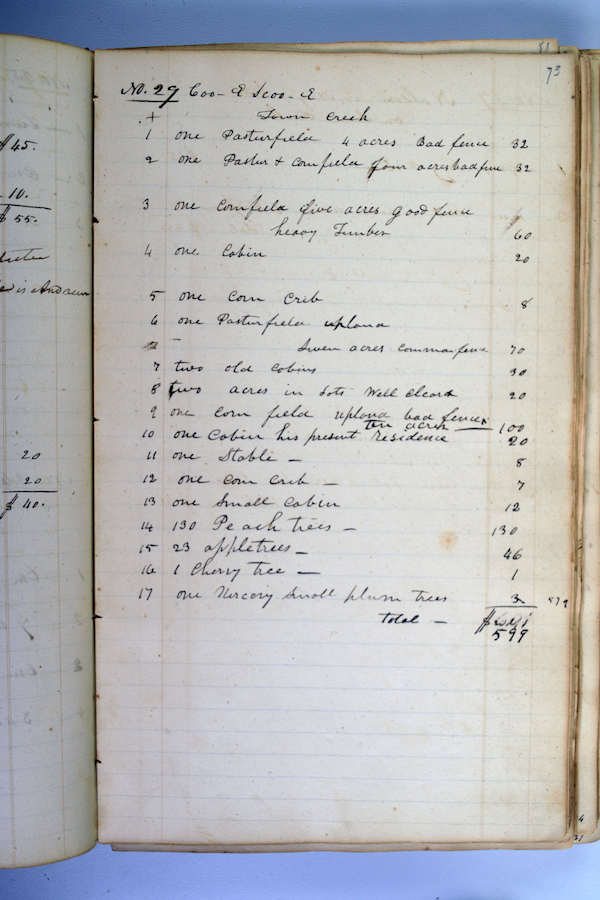 81
73
$45.
10.
$ 55.
is Andrew
20
20
$ 40.
No. 29 Coo-E Scoo-E
+ Town Creek
1 one Pasturfield 4 acres Bad fence 32
2 one Pastur & Cornfield four acres bad fence 32
3 one Cornfield five acres good fence
heavy Timber 60
4 one Cabin 20
5 one Corn Crib 8
6 one Pasturfield upland
Seven acres common fence 70
7 two old Cabins 30
8 two acres in Lots Well cleard 20
9 one Corn field upland bad fence
ten acres 100
10 one Cabin his present residence 20
11 one Stable – 8
12 one Corn Crib – 7
13 one Small Cabin 12
14 130 Peach trees – 130
15 23 appletrees – 46
16 1 Cherry tree – 1
17 one Nercery Small plum trees 3 579
total – $
599